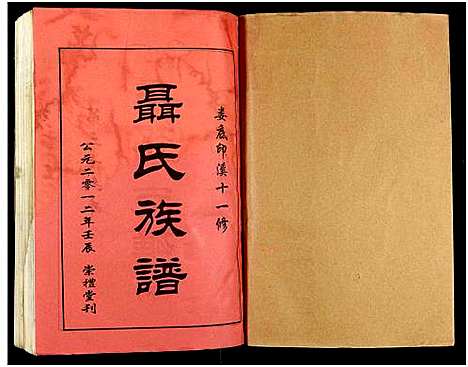 娄底印溪十一修
聶氏族譜
公元二零一二年壬辰 崇禮堂刊